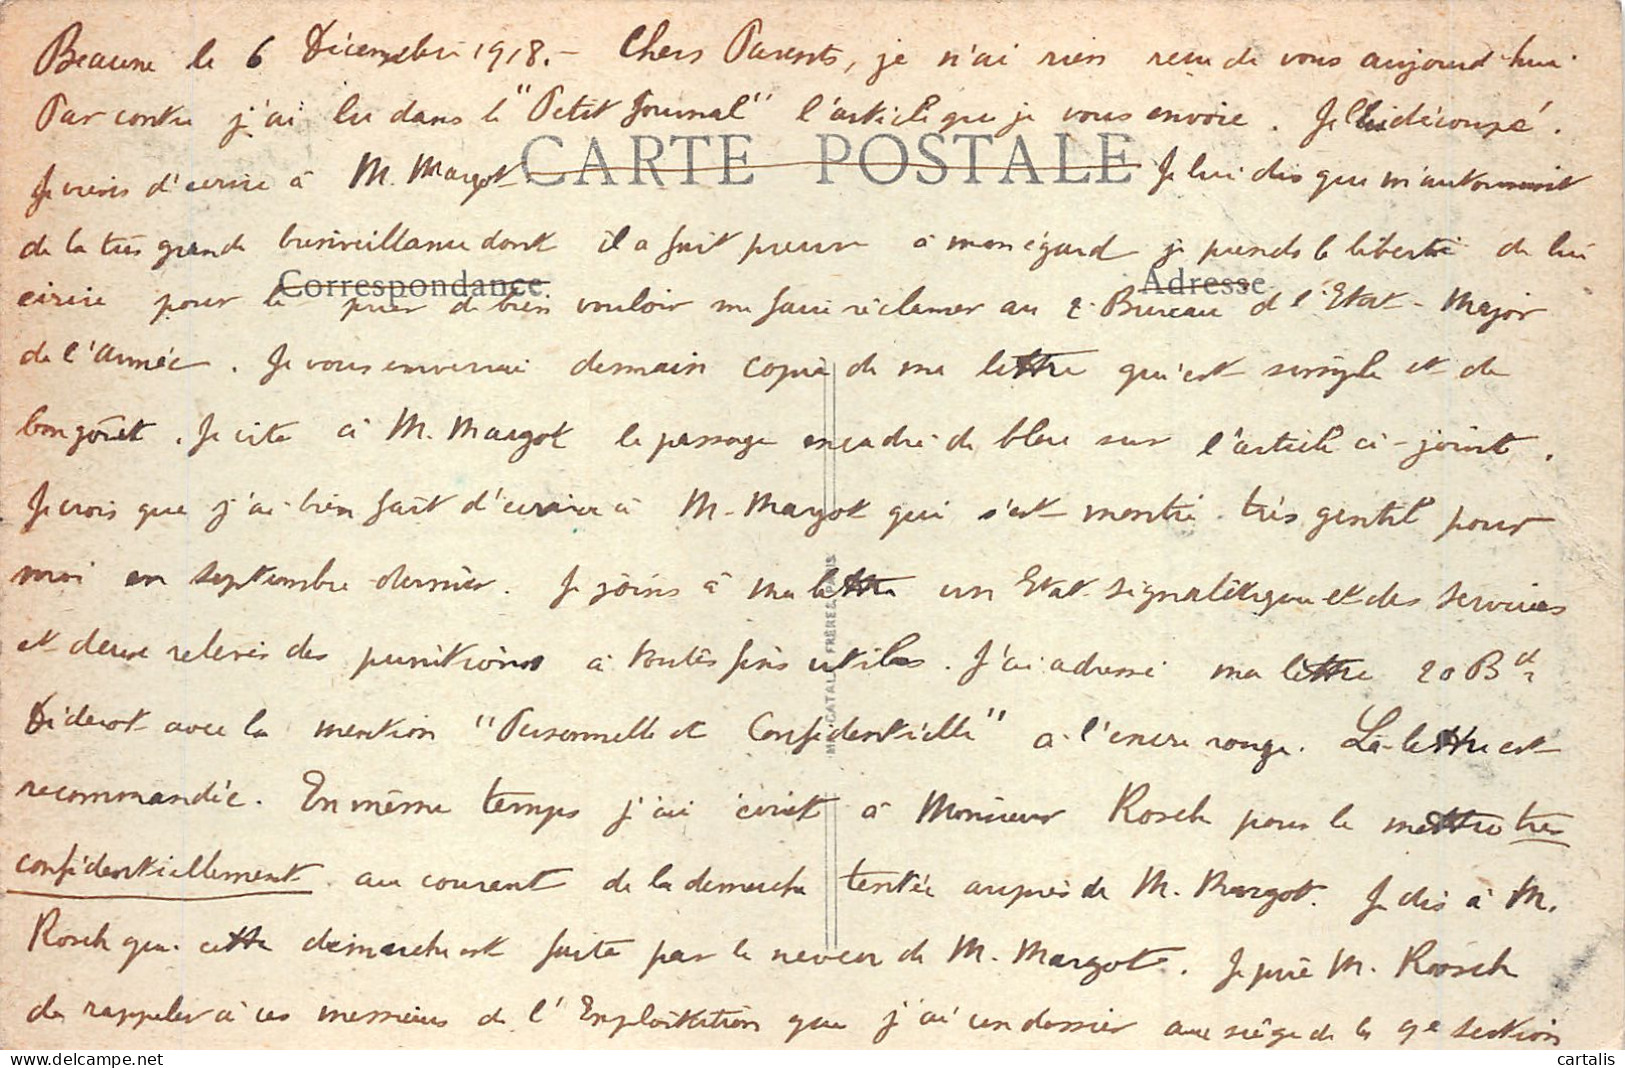 Beaune le 6 Décembre 1918. - Chers Parents, je n'ai rien reçu de vous aujourd'hui.
Par contre j'ai lu dans le "Petit Journal" l'article que je vous envoie. Je l'ai découpé.
CARTE POSTALE
Je viens d'écrire à M. Margot. Je lui dis que m'autorisant
de la très grande bienveillance dont il a fait preuve à mon égard je prends la liberté de lui
Correspondance
Adresse
écrire pour le prier de bien vouloir me faire réclamer au 2e Bureau de l'Etat-Major
de l'Armée. Je vous enverrai demain copie de ma lettre qu'est simple et de
bon goût. Je cite à M. Margot le passage encadré de bleu sur l'article ci-joint.
Je crois que j'ai bien fait d'écrire à M. Margot qui s'est montré très gentil pour
moi en septembre dernier. Je joins à ma lettre un Etat signalétique et des services
et deux relevés des punitions à toutes fins utiles. J'ai adressé ma lettre 20 Bd
Diderot avec la mention "Personnelle et Confidentielle" à l'encre rouge. La lettre est
recommandée. En même temps j'ai écrit à Monsieur Rosch pour le mettre très
confidentiellement au courant de la démarche tentée auprès de M. Margot. Je dis à M.
Rosch que cette démarche est faite par le neveu de M. Margot. Je prie M. Rosch
de rappeler à ces messieurs de l'Exploitation que j'ai un dossier au siège de la 9e section
MICATALA FRERES PARIS
cartalis